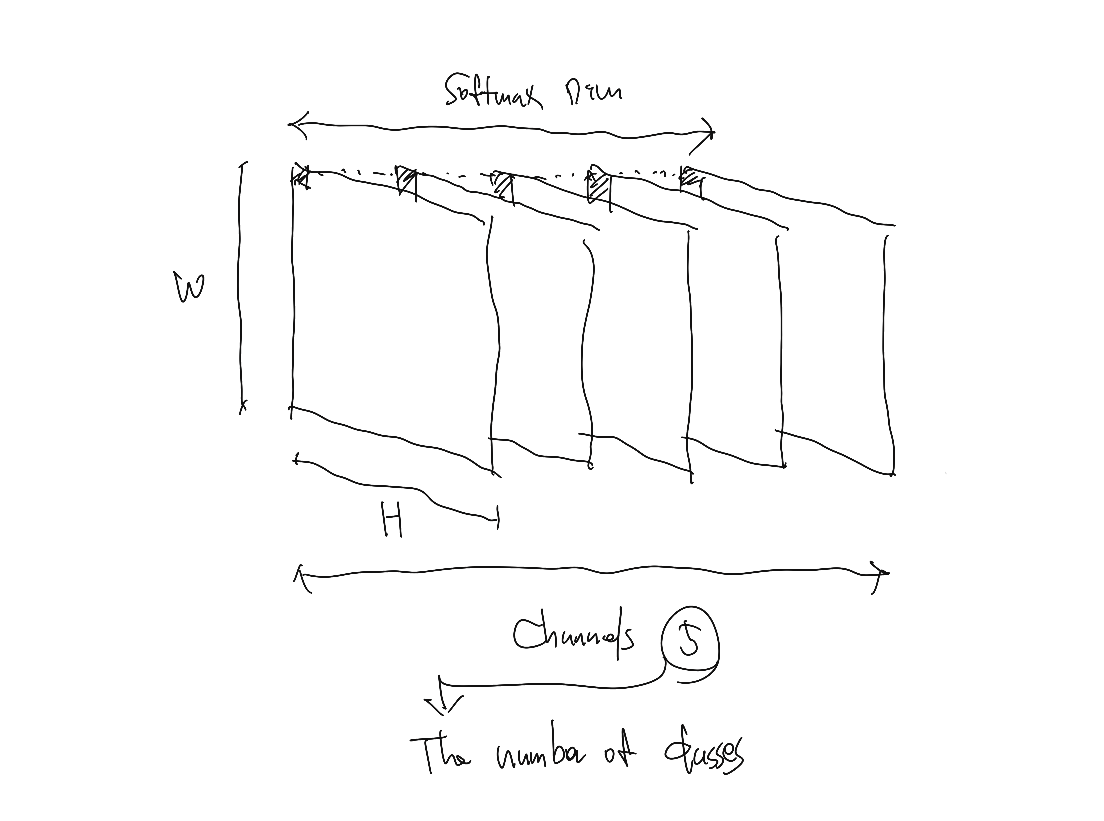 Softmax Dim
W
H
Channels 5
The number of classes